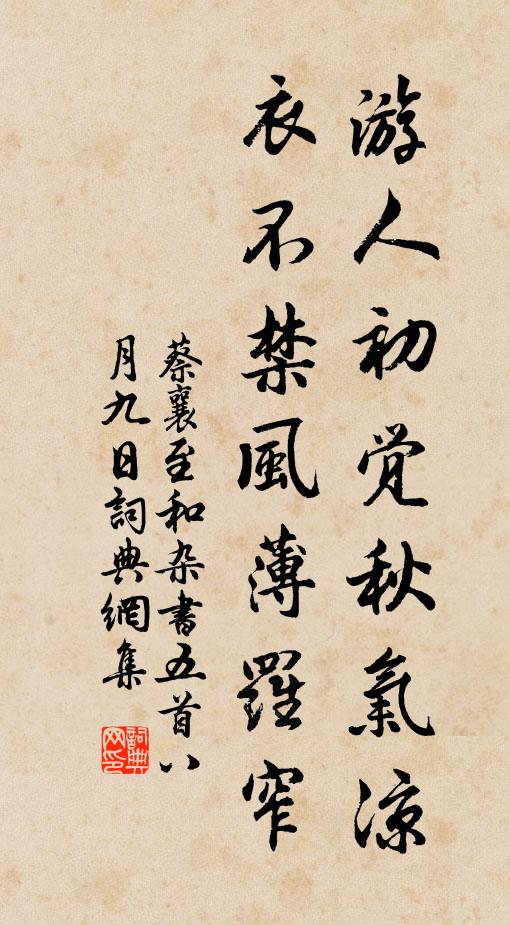 游人初觉秋氣涼
衣不禁風薄羅窄
蔡襄至和杂書五首八
月九日詞典網集
詞典网印